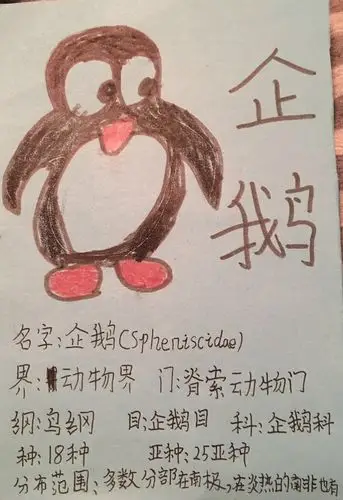 企
鹅
名字:企鹅(Spheniscidae)
界:动物界 门:脊索动物门
纲:鸟纲 目:企鹅目 科:企鹅科
种:18种 亚种:25亚种
分布范围:多数分部在南极,在炎热的南非也有